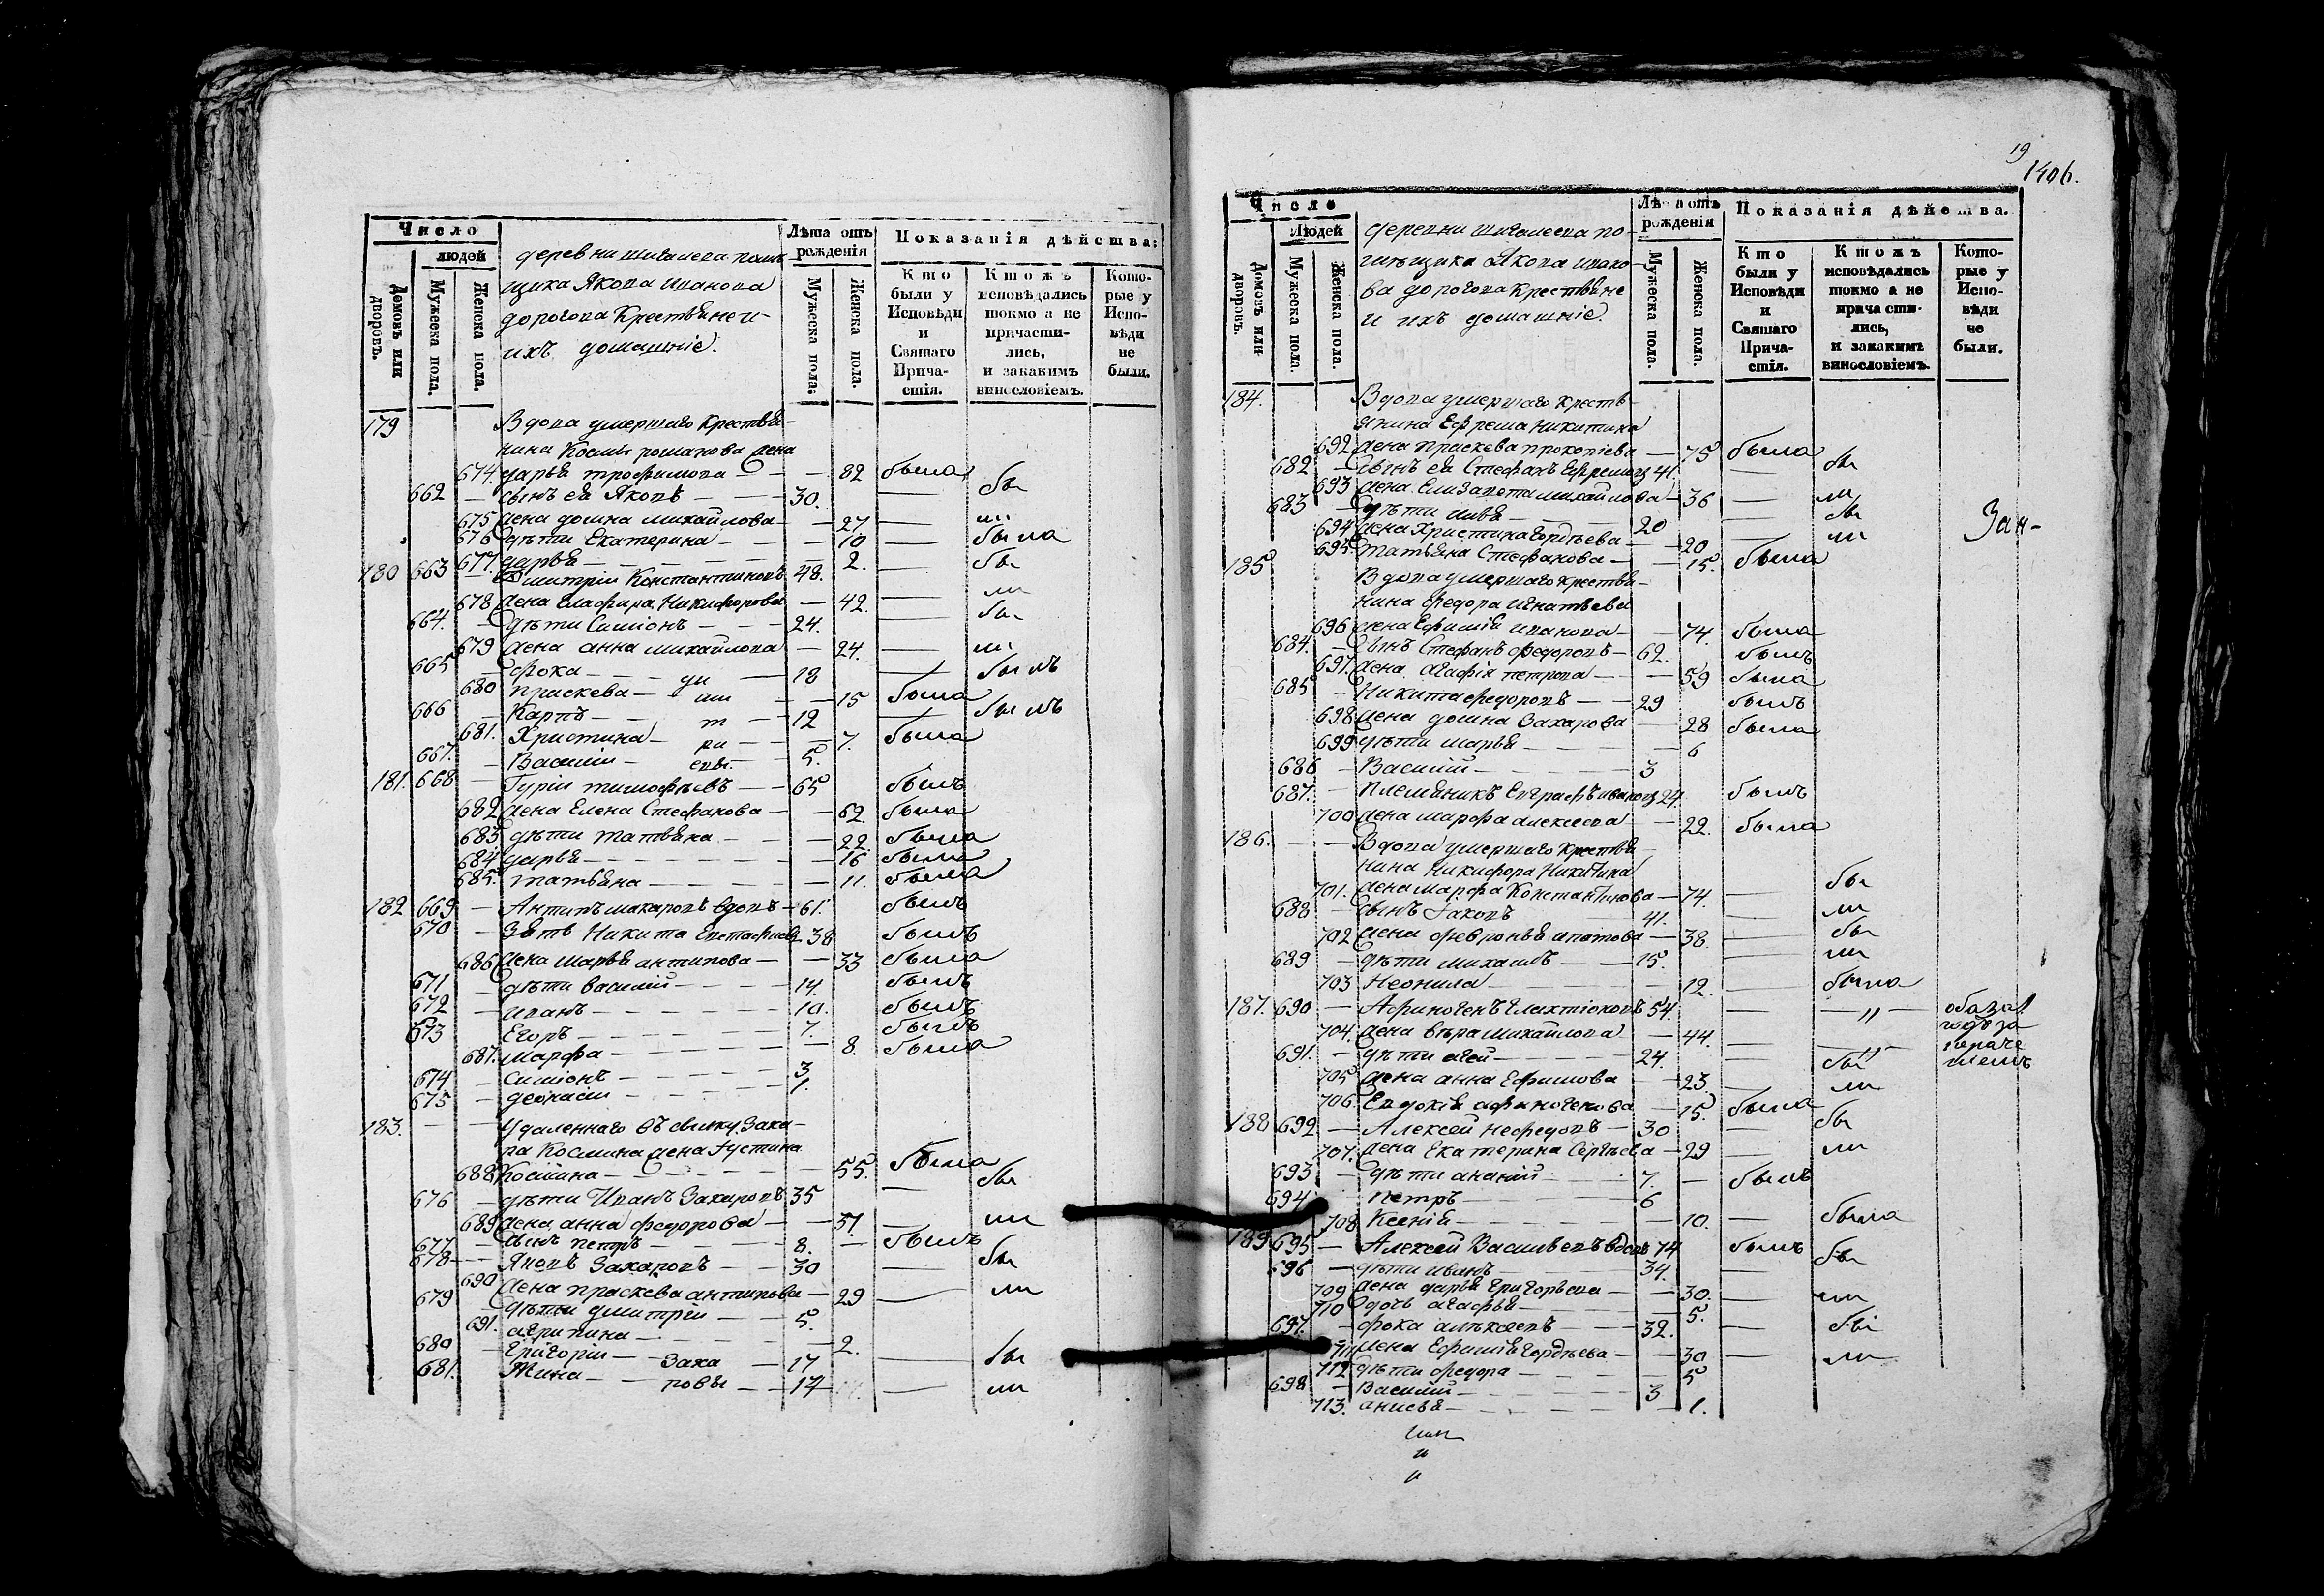 Число
людей
Домовъ или дворовъ.
Мужеска пола.
Женска пола.
деревни
щика Якова Иванова
дорогова Крестьяне и
ихъ домашніе.
Лѣта отъ рожденія
Мужеска пола:
Женска пола.
Показанія дѣйства:
Кто были у Исповѣди и Святаго Прича-стія.
Ктожъ исповѣдались токмо а не причасти-лись, и закакимъ винословіемъ.
Кото-рые у Испо-вѣди не были.
179
Вдова умершаго Крестья-
нина Космы романова жена
674. дарья трофимова — — 82 была
662 — сынъ ея Яковъ — — 30. — бы
675 жена домна михайлова — — 27 — ли
676 дѣти Екатерина — — 10 — была
677. дарья — — 2. — бы
180 663 — Димитрій Константиновъ 48.
678 жена Глафира Никифорова — 42. — ли
664. — дѣти Симіонъ — — 24. — бы
679 жена анна михайлова — 24. — ли
665 — фока — ди — 18 — былъ
680 прискева — ми — 15 была
666 — Карпъ — т — 12 — былъ
681. Христина — ри — 7. была
667. — Василій — евы. — 5.
181. 668 — Гурій тимофѣевъ — — 65 былъ
682 жена Елена Стефанова — — 62. была
683. дѣти татьяна — — 22. была
684 дарья — — 16 была
685. татьяна — — 11. была
182 669 — Антипъ макаровъ вдовъ — 61. былъ
670 — Зять Никита Евстафиевъ 38 былъ
686 жена марья антипова — — 33 была
671 — дѣти василій — — 14. былъ
672 — иванъ — — 10. былъ
673 — Егоръ — — 7. былъ
687. марфа — — 8. была
674 — симіонъ — — 3
675 — афонасій — — 1.
183. — — Удаленнаго въ ссылку Заха-
ра Космина жена Іустина
688 Космина — — 55. была
676 — дѣти Иванъ Захаровъ 35 — бы
689 жена анна федорова — — 31. — ли
677 — сынъ петръ — — 8. — былъ
678 — Яковъ Захаровъ — — 30 — бы
690 жена праскева антипова — 29 — ли
679 — дѣти дмитрій — — 5.
691. агрипина — — 2.
680 — Григорій — Заха — 17 — бы
681. Мина — ровы — — 14 — ли
19
1406.
Число
Людей
Домовъ или дворовъ.
Мужеска пола.
Женска пола.
деревни по-
мѣщика Якова ивано-
ва дорогова Крестьяне
и ихъ домашніе.
Лѣта отъ рожденія
Мужеска пола.
Женска пола.
Показанія дѣйства.
Кто были у Исповѣди и Святаго Прича-стія.
Ктожъ исповѣдались токмо а не прича сти-лись, и закакимъ винословіемъ.
Кото-рые у Испо-вѣди не были.
184. Вдова умершаго Кресть-
янина Ефрема Никитина
692 жена праскева прокопіева — 75 была
682 — сынъ ея Стефанъ Ефремовъ 41. бы
693 жена Елизавета михайлова — 36 — ли
683 — дѣти — 20 — бы
694 жена Христина Гордѣева — — 20 — ли
695 татьяна Стефанова — — 15. была
Зан-
185 Вдова умершаго крестья-
нина федора игнатьева
696 жена Ефимія иванова — — 74. была
684. — сынъ Стефанъ федоровъ — 62. былъ
697. жена агафія петрова — — 59 была
685 — Никита федоровъ — — 29 былъ
698 жена домна Захарова — 28 была
699 дѣти марья — — 6
686 — Василій — — 3
687. — племянникъ Евграфъ ивановъ 24. былъ
700 жена марфа алексеева — 22. была
186. — — Вдова умершаго крестья-
нина Никифора Никитина
701. жена марфа Константинова — 74. — бы
688 — сынъ Іаковъ 41. — ли
702 жена февронья ипатова — 38. — бы
689 — дѣти михаилъ — — 15. — ли
703 Неонила — — 12. — была
187. 690 — Афиногенъ 54. — — „ —
704. жена вѣра михайлова — 44. — — „ —
691. — дѣти агей — 24. — бы
705 жена анна Ефимова — 23. — ли
706. Евдокія афиногенова — 15. была
188 692 — Алексей Нефедовъ — 30 — бы
707. жена Екатерина Сергѣева — 29 — ли
693 — дѣти ананій — 7. — былъ
694 петръ — 6
708 Ксенія — — 10. — была
189 695 — Алексей Васильевъ вдовъ 74 былъ
696 — дѣти иванъ — 34. — бы
709 жена дарья григорьева — — 30. — ли
710 дочь агафья — — 5.
697. — фока алѣксеевъ — — 32. — бы
711 жена Ефимія Гордѣева — — 30 — ли
712 дѣти федора — — 5
698 — Василій — 3
713. анисья — — 1.